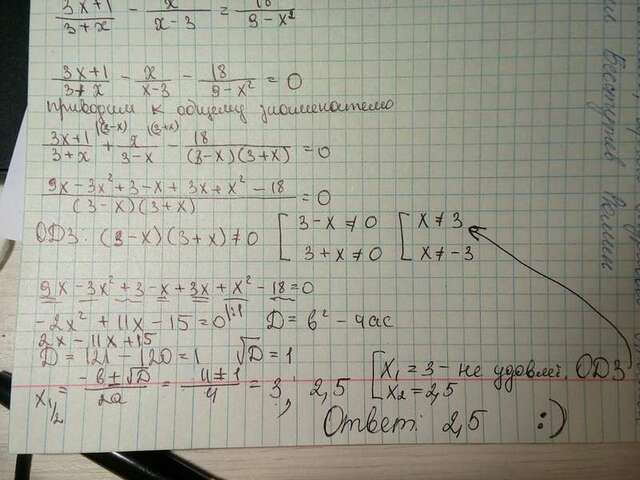 3x+1/3+x - x/x-3 = 18/9-x²
3x+1/3+x - x/x-3 - 18/9-x² = 0
приводим к общему знаменателю
3x+1/3+x |(3-x) + x/3-x |(3+x) - 18/(3-x)(3+x) = 0
9x-3x²+3-x+3x+x²-18/(3-x)(3+x) = 0
ОДЗ: (3-x)(3+x)≠0 [3-x≠0 [x≠3
3+x≠0 x≠-3
9x-3x²+3-x+3x+x²-18=0
-2x²+11x-15=0 |:1 D=b²-4ac
2x-11x+15
D=121-120=1 √D=1
x1/2 = -b±√D/2a = -11±1/4 = 3; 2,5 [x₁=3-не удовл. ОДЗ
x₂=2,5
Ответ: 2,5 :)